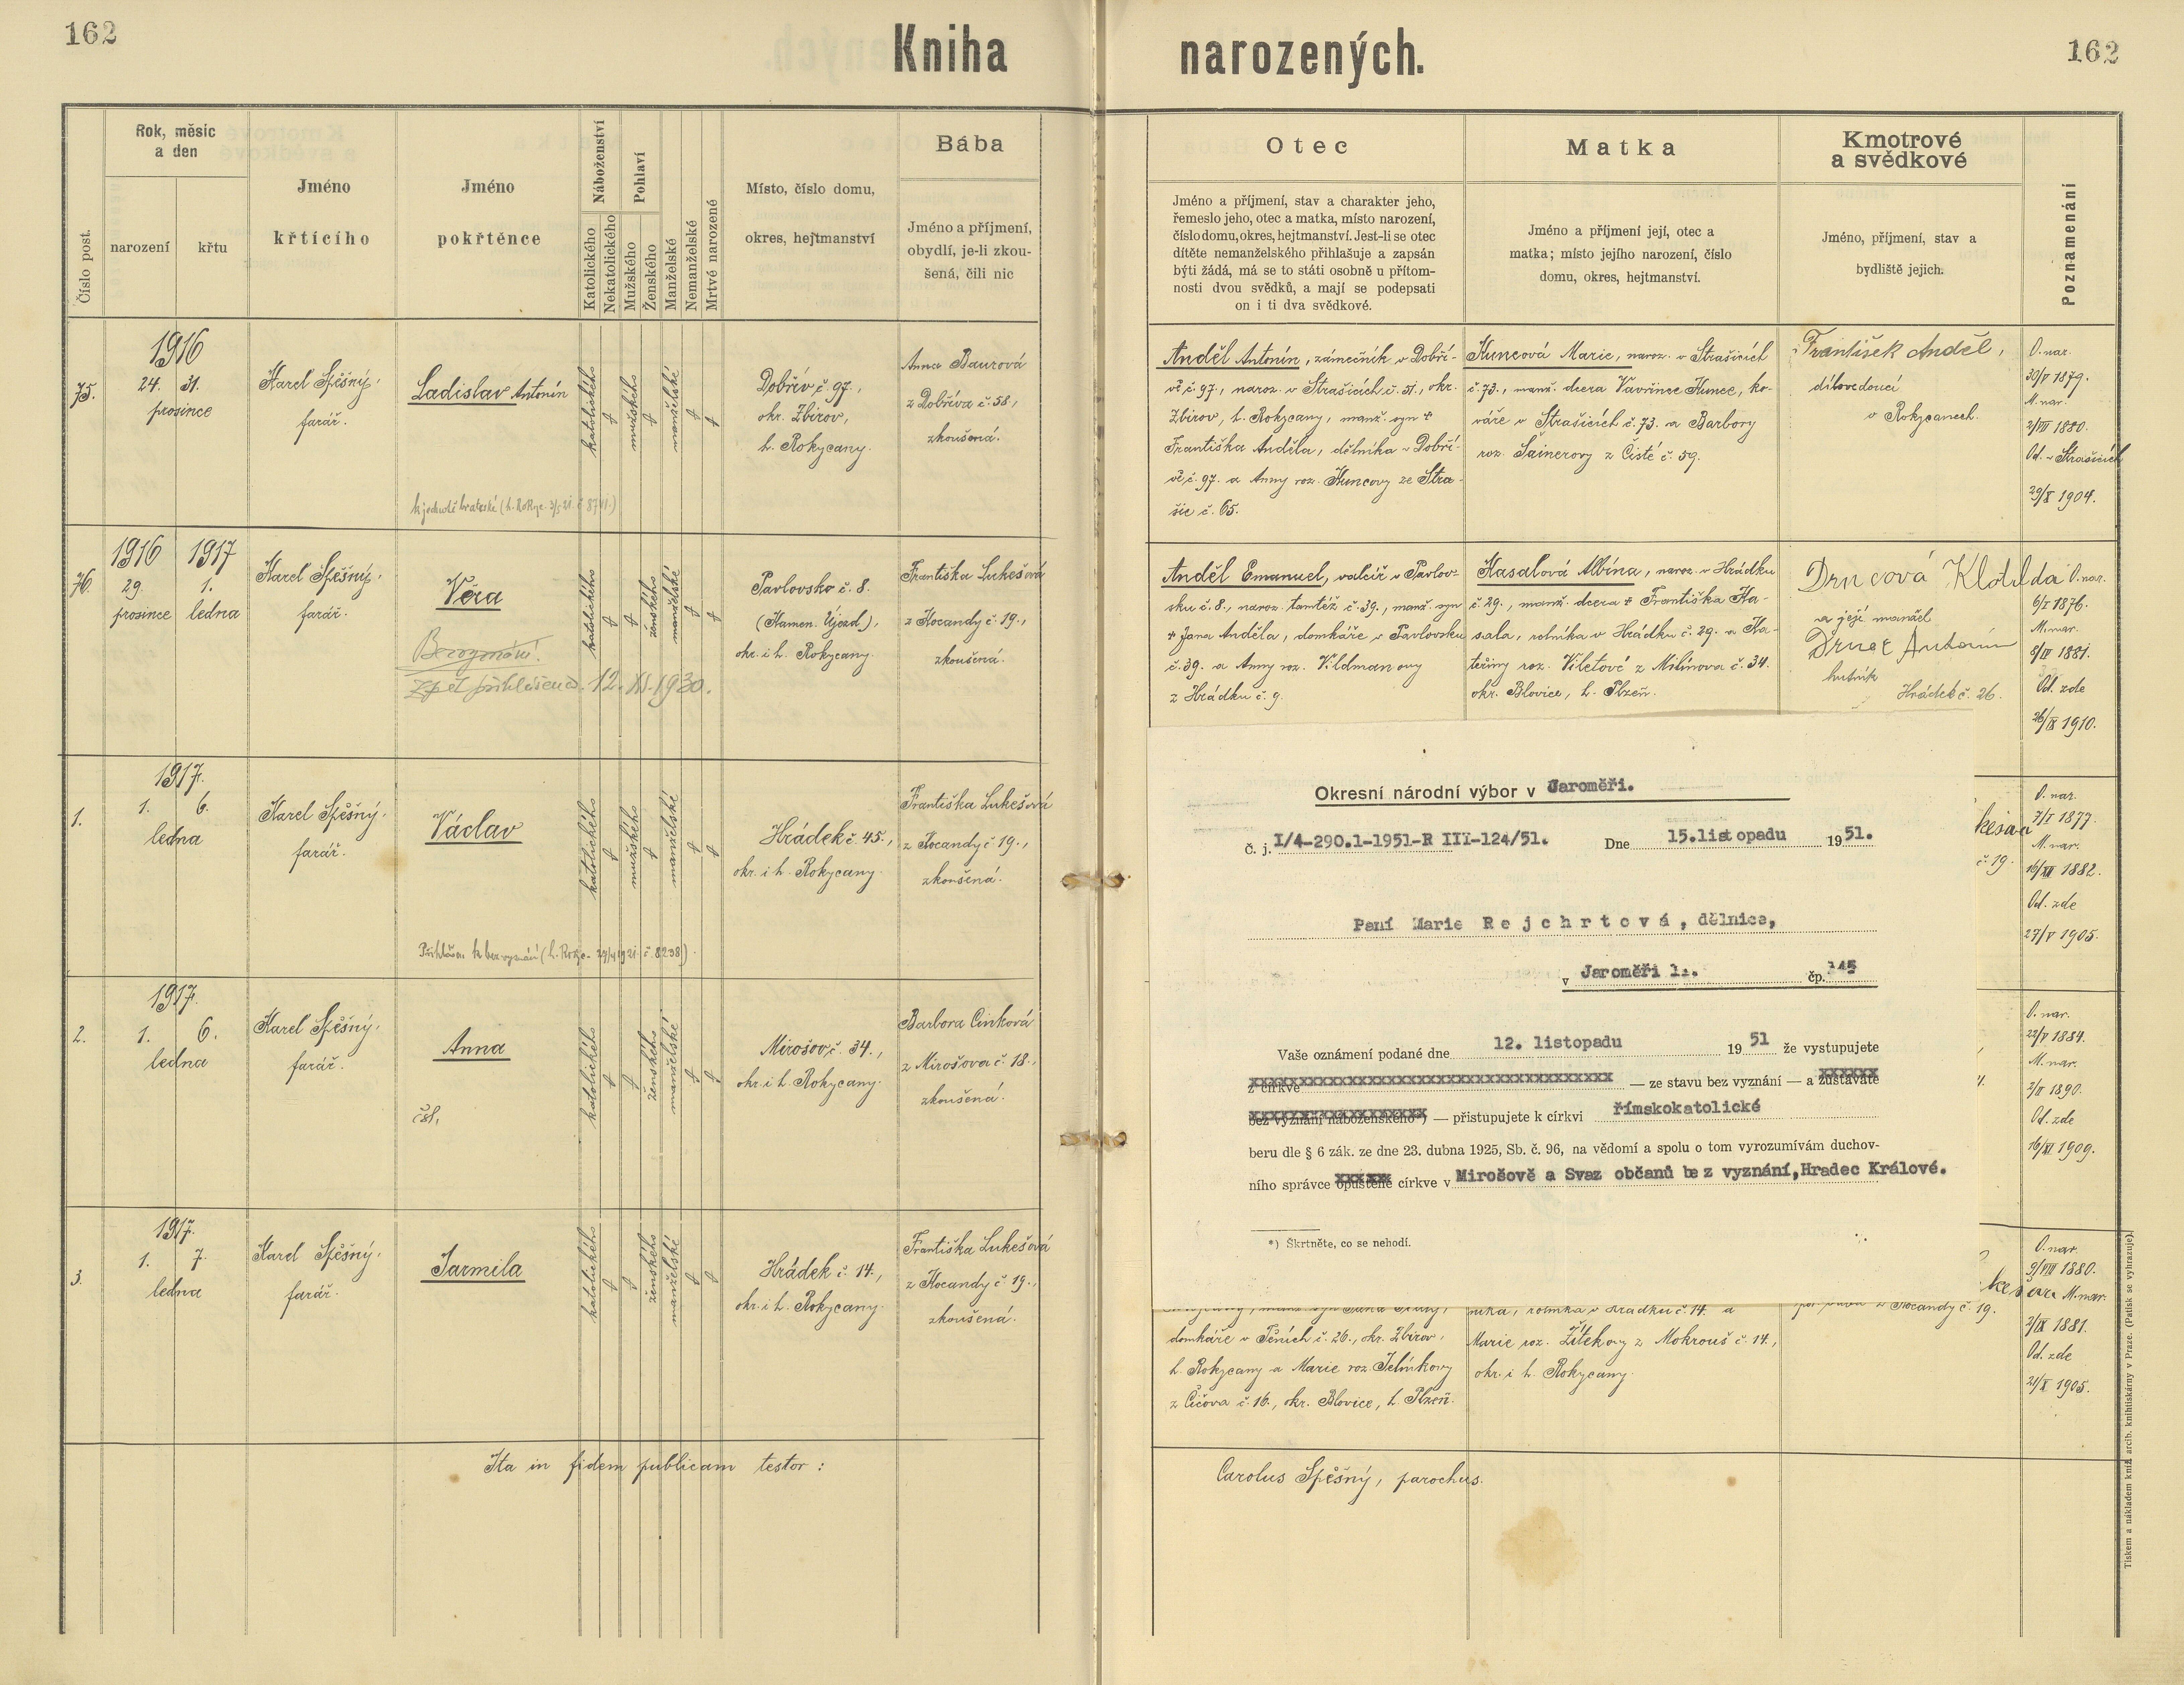 162
Kniha narozených.
162
Číslo post.
Rok, měsíc
a den
narození
křtu
Jméno
křtícího
Jméno
pokřtěnce
Náboženství
Katolického
Nekatolického
Pohlaví
Mužského
Ženského
Manželské
Nemanželské
Mrtvě narozené
Místo, číslo domu,
okres, hejtmanství
Bába
Jméno a příjmení,
obydlí, je-li zkou-
šená, čili nic
Otec
Jméno a příjmení, stav a charakter jeho,
řemeslo jeho, otec a matka, místo narození,
číslo domu, okres, hejtmanství. Jest-li se otec
dítěte nemanželského přihlašuje a zapsán
býti žádá, má se to státi osobně u přítom-
nosti dvou svědků, a mají se podepsati
on i ti dva svědkové.
Matka
Jméno a příjmení její, otec a
matka; místo jejího narození, číslo
domu, okres, hejtmanství.
Kmotrové
a svědkové
Jméno, příjmení, stav a
bydliště jejich.
Poznamenání
75.
1916
24. 31.
prosince
Karel Spěšný,
farář.
Ladislav Antonín
katolického
mužského
manželské
Dobřív č. 97.,
okr. Zbirov,
h. Rokycany.
Anna Baurová
z Dobříva č. 58,
zkoušená.
Anděl Antonín, zámečník v Dobří-
vě č. 97., naroz. v Strašicích č. 51., okr.
Zbirov, h. Rokycany, manž. syn †
Františka Anděla, dělníka v Dobří-
vě č. 97. a Anny roz. Kuncovy ze Stra-
šic č. 65.
Kuncová Marie, naroz. v Strašicích
č. 73., manž. dcera Vavřince Kunce, ko-
váře v Strašicích č. 73. a Barbory
roz. Šainerovy z Čisté č. 59.
František Anděl,
dílovedoucí
v Rokycanech.
O. nar.
30/V 1879.
M. nar.
2/VII 1880.
Od. v Strašicích
29/X 1904.
76.
1916 1917
29. 1.
prosince ledna
Karel Spěšný,
farář.
Věra
Bez vyznání.
Zpět přihlášena 12. XI. 1930.
katolického
ženského
manželské
Pavlovsko č. 8.
(Kamen. Újezd),
okr. i h. Rokycany.
Františka Lukešová
z Kocandy č. 19.,
zkoušená.
Anděl Emanuel, valcíř v Pavlov-
sku č. 8., naroz. tamtéž č. 39., manž. syn
† Jana Anděla, domkáře v Pavlovsku
č. 39. a Anny roz. Vildmanovy
z Hrádku č. 9.
Kasalová Albína, naroz. v Hrádku
č. 29., manž. dcera † Františka Ka-
sala, rolníka v Hrádku č. 29. a Ka-
teřiny roz. Viletové z Milínova č. 34.
okr. Blovice, h. Plzeň.
Drncová Klotilda
a její manžel
Drnec Antonín
hutník
Hrádek č. 26.
O. nar.
6/I 1876.
M. nar.
8/IV 1881.
Od. zde
26/IX 1910.
1.
1917.
1. 6.
ledna
Karel Spěšný,
farář.
Václav
katolického
mužského
manželské
Hrádek č. 45.,
okr. i h. Rokycany.
Františka Lukešová
z Kocandy č. 19.,
zkoušená.
č. 19.
O. nar.
7/I 1877.
M. nar.
16/XII 1882.
Od. zde
27/V 1905.
2.
1917.
1. 6.
ledna
Karel Spěšný,
farář.
Anna
čsl.
katolického
ženského
manželské
Mirošov č. 34.,
okr. i h. Rokycany.
Barbora Cinková
z Mirošova č. 18.,
zkoušená.
O. nar.
22/V 1884.
M. nar.
2/II 1890.
Od. zde
16/XI 1909.
3.
1917.
1. 7.
ledna
Karel Spěšný,
farář.
Jarmila
katolického
ženského
manželské
Hrádek č. 14.,
okr. i h. Rokycany.
Františka Lukešová
z Kocandy č. 19.,
zkoušená.
domkáře v Těních č. 26., okr. Zbirov,
h. Rokycany a Marie roz. Jelínkovy
z Čičova č. 16., okr. Blovice, h. Plzeň.
níka, rolníka v Hrádku č. 14. a
Marie roz. Žítekovy z Mokrouš č. 14.,
okr. i h. Rokycany.
z Kocandy č. 19.
O. nar.
9/VIII 1880.
M. nar.
2/IX 1881.
Od. zde
21/X 1905.
Okresní národní výbor v Jaroměři.
Č. j. I/4-290.1-1951-R III-124/51. Dne 15.listopadu 1951.
Paní Marie Rejchrtová, dělnice,
v Jaroměři 1.. čp. 145
Vaše oznámení podané dne 12. listopadu 1951 že vystupujete
z církve — ze stavu bez vyznání — a zůstáváte
bez vyznání náboženského*) — přistupujete k církvi římskokatolické
beru dle § 6 zák. ze dne 23. dubna 1925, Sb. č. 96, na vědomí a spolu o tom vyrozumívám duchov-
ního správce opuštěné církve v Mirošově a Svaz občanů bez vyznání,Hradec Králové.
*) Škrtněte, co se nehodí.
Ita in fidem publicam testor:
Carolus Spěšný, parochus.
Tiskem a nákladem kníž. arcib. knihtiskárny v Praze. (Patisk se vyhrazuje).